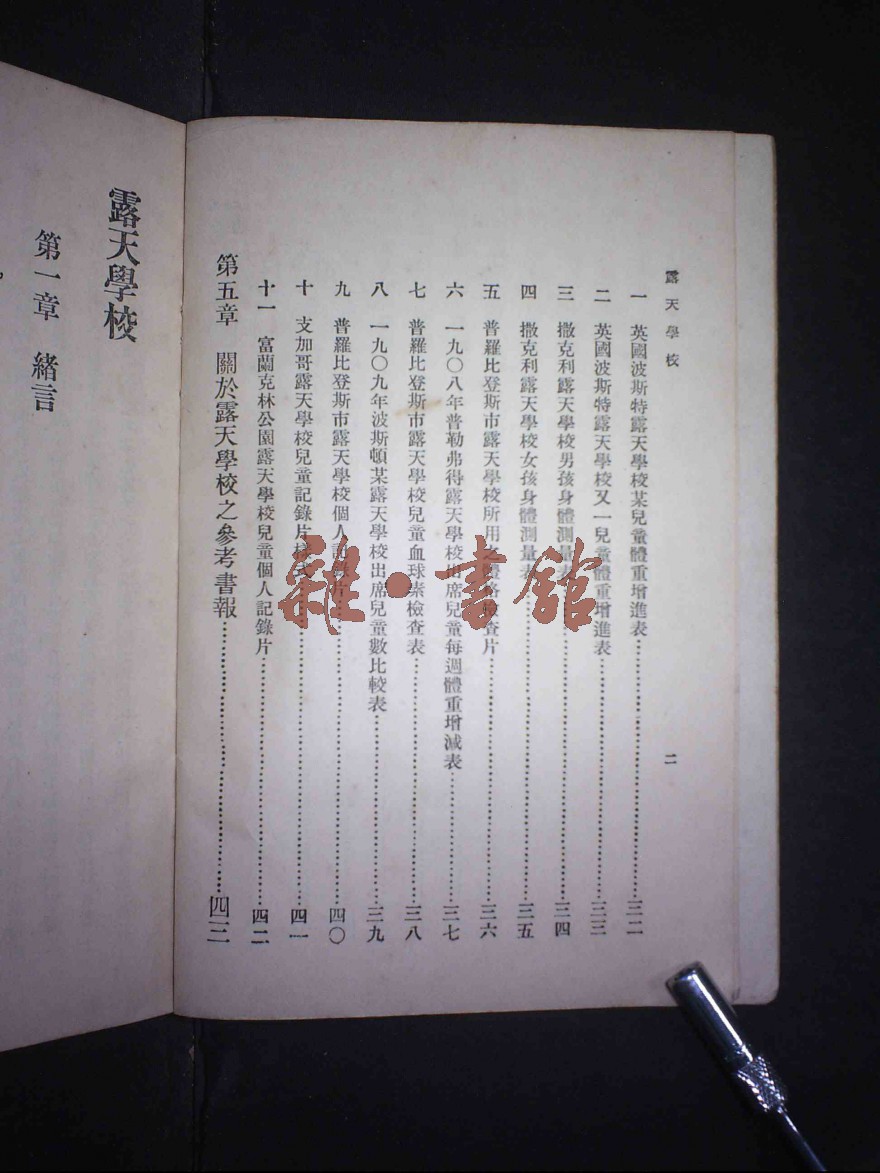 露天學校
二
一 英國波斯特露天學校某兒童體重增進表……三二
二 英國波斯特露天學校又一兒童體重增進表……三三
三 撒克利露天學校男孩身體測量表……三四
四 撒克利露天學校女孩身體測量表……三五
五 普羅比登斯市露天學校所用之體格檢查片……三六
六 一九〇八年普勒弗得露天學校出席兒童每週體重增減表……三七
七 普羅比登斯市露天學校兒童血球素檢查表……三八
八 一九〇九年波斯頓某露天學校出席兒童數比較表……三九
九 普羅比登斯市露天學校個人記錄片……四〇
十 支加哥露天學校兒童記錄片樣式……四一
十一 富蘭克林公園露天學校兒童個人記錄片……四二
第五章 關於露天學校之參考書報……四二
露天學校
第一章 緒言
雜·書館